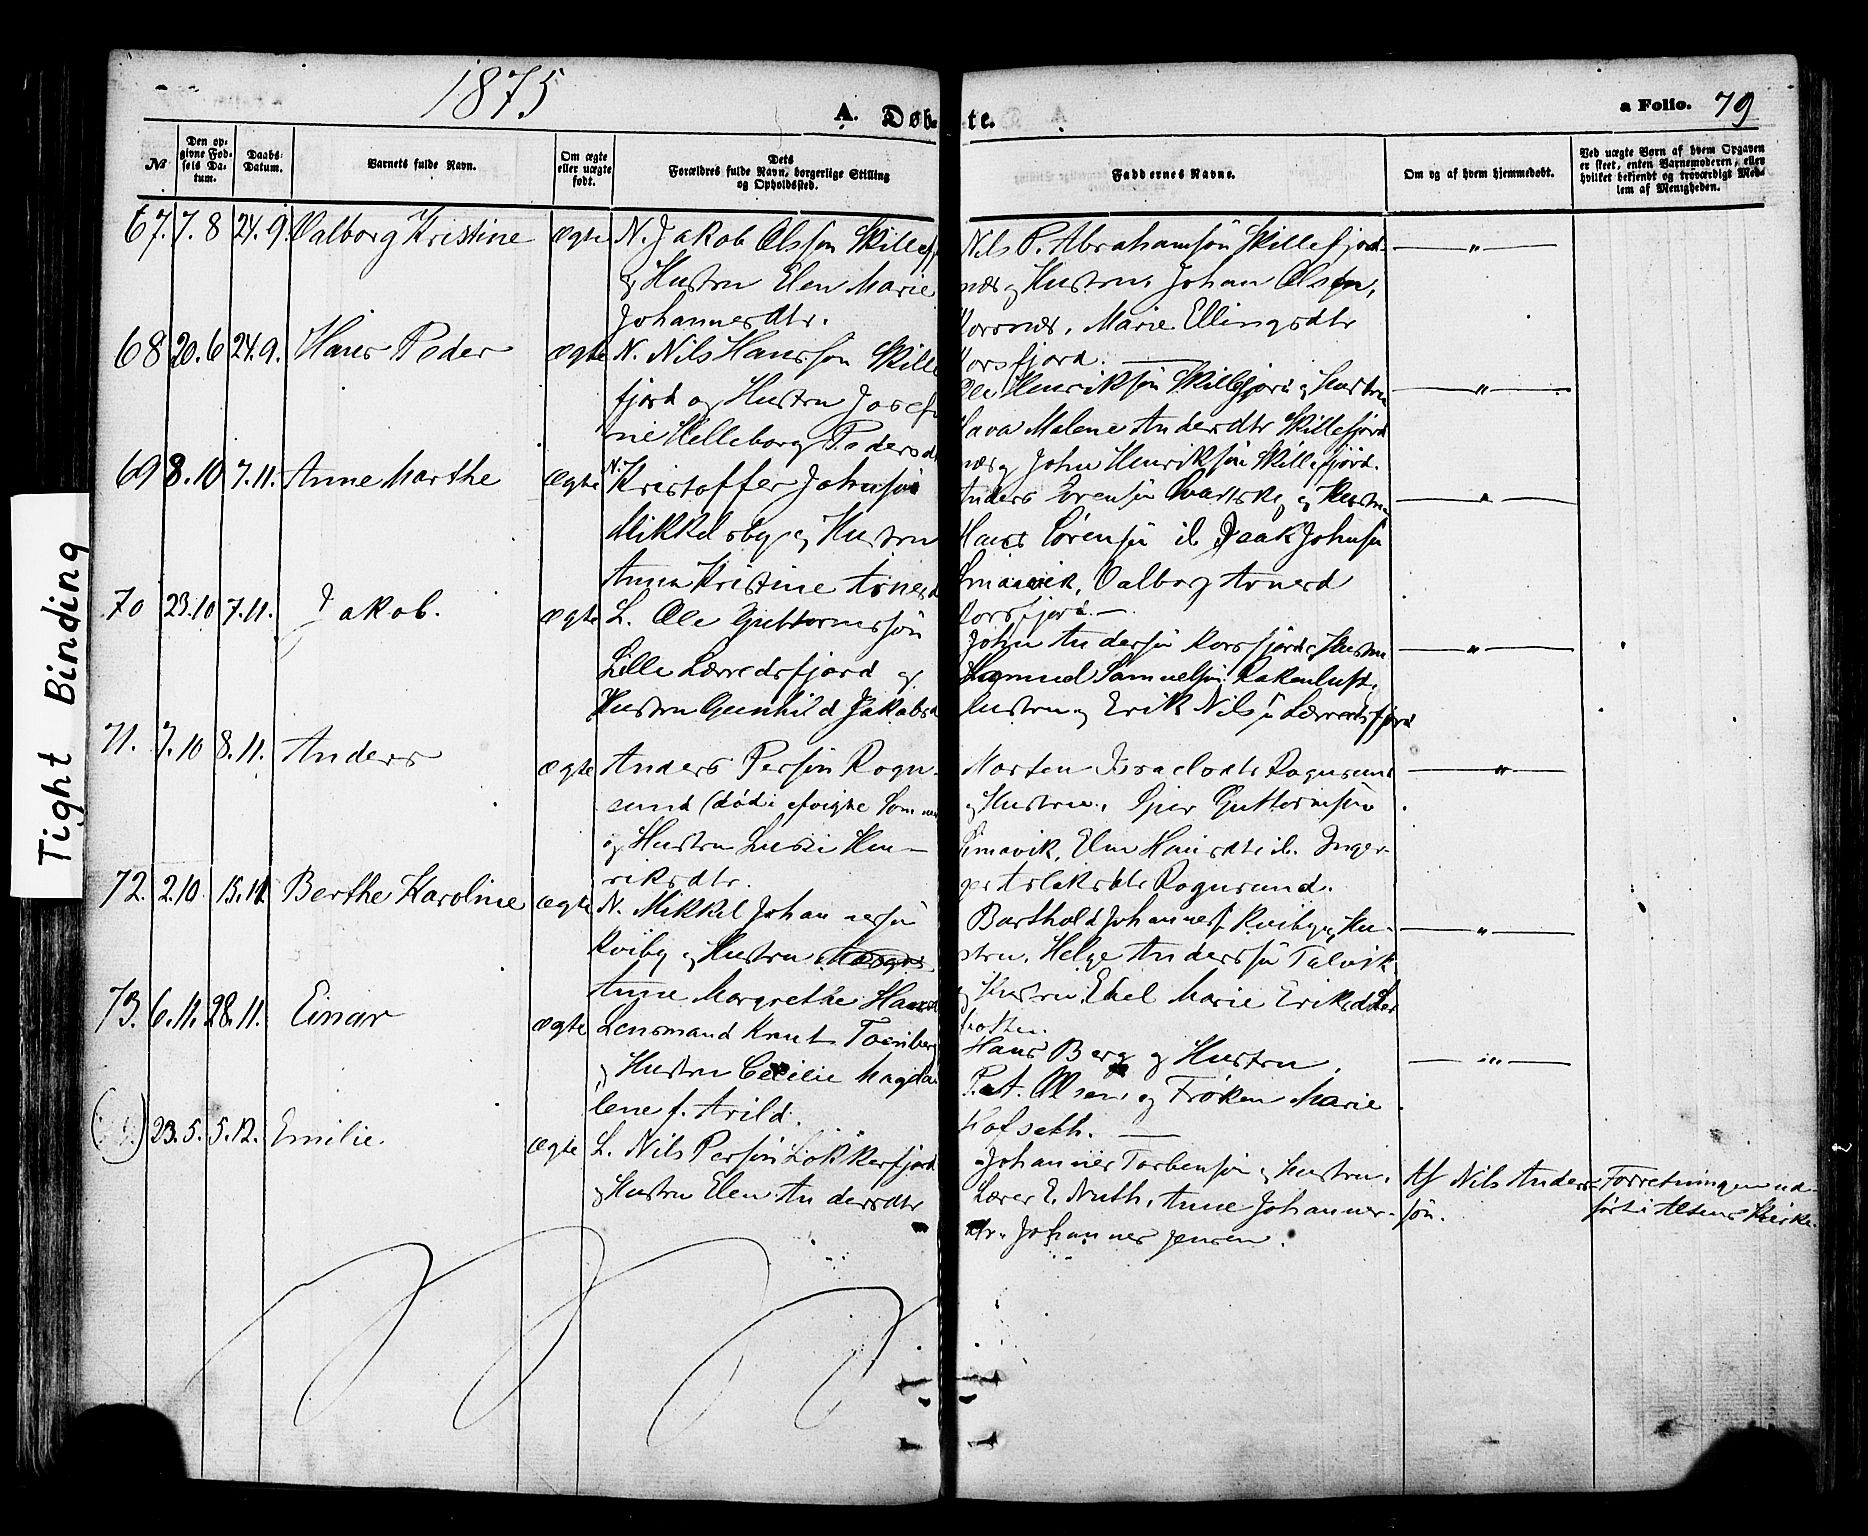 1875
A. Døb-
te.
a Folio. 79
№
Den op-
givne Fød-
sels Da-
tum.
Daabs-
Datum.
Barnets fulde Navn.
Om ægte
eller uægte
født.
Dets
Forældres fulde Navn, borgerlige Stilling
og Opholdssted.
Faddernes Navne.
Om og af hvem hjemmedøbt.
Ved uægte Børn af hvem Opgaven
er skeet, enten Barnemoderen, eller
hvilket bekjendt og troværdigt Med-
lem af Menigheden.
67. 7.8 24.9. Valborg Kristine ægte N. Jakob Olsson Skillef
og Hustru Elen Marie
Johannesdtr.
Nils P. Abrahamsøn Skillefjord-
næs og Hustru, Johan Olsen,
Korsnæs, Marie Ellingsdtr
Korsfjord. — „ —
68 20.6 24.9. Hans Peder ægte N. Nils Hansson Skille
fjord og Hustru Josefi
ne Helleborg Pedersd
Ole Henriksøn Skillefjord og Hustru
Malene Andersdtr Skillefjord
næs og John Henriksøn Skillefjord. — „ —
69 8.10 7.11. Anne Marthe ægte N. Kristoffer Johnsøn
Mikkelsby og Hustru
Anna Kristine Arnesd
Anders Sørensøn og Hustru
Hans Sørensøn Isak Johnsøn
Valborg Arnesd
Korsfjord. — „ —
70 23.10 7.11. Jakob. ægte L. Ole Guttormssøn
Lille Lærredsfjord og
Hustru Gunhild Jakobsd
John Andersøn Korsfjord, Hustru
Samuelsøn Rakenluft,
Hustru og Erik Nilsøn Lærredsfjord — „ —
71. 7.10 8.11. Anders ægte Anders Persøn Rogn-
sund (død i afvigte Sommer
og Hustru Lussi Hen-
riksdtr.
Morten Israelsdtr Rognsund
og Hustru, Guttormsøn
Simavik, Elen Hansdtr ib. Inger-
Aslaksdtr Rognsund. — „ —
72. 2.10 15.11. Berthe Karoline ægte N. Mikkel Johannesøn
Kviby og Hustru
Anne Margrethe Hansd
Barthold Johannesf. Kviby og Hu-
stru, Helge Anderssøn Talvik
og Hustru, Ethel Marie Eriksdtr — „ —
73. 6.11. 28.11. Einar ægte Lensmand Knut
og Hustru Cecilie Magda
lene f. Arild.
Hans Berg og Hustru,
P. A. Olsen og Frøken Marie
Hofseth. — „ —
23.5. 5.12. Emilie. ægte L. Nils Persøn Lokkerfjord
og Hustru Elen Andersdtr
Johannes Torbensøn og Hustru,
Lærer E. Nuth, Anne Johannes-
dtr. Johannes Jensen.
Af Nils Anders-
søn.
Forretningen ud-
ført i Altens Kirke.
Tight Binding